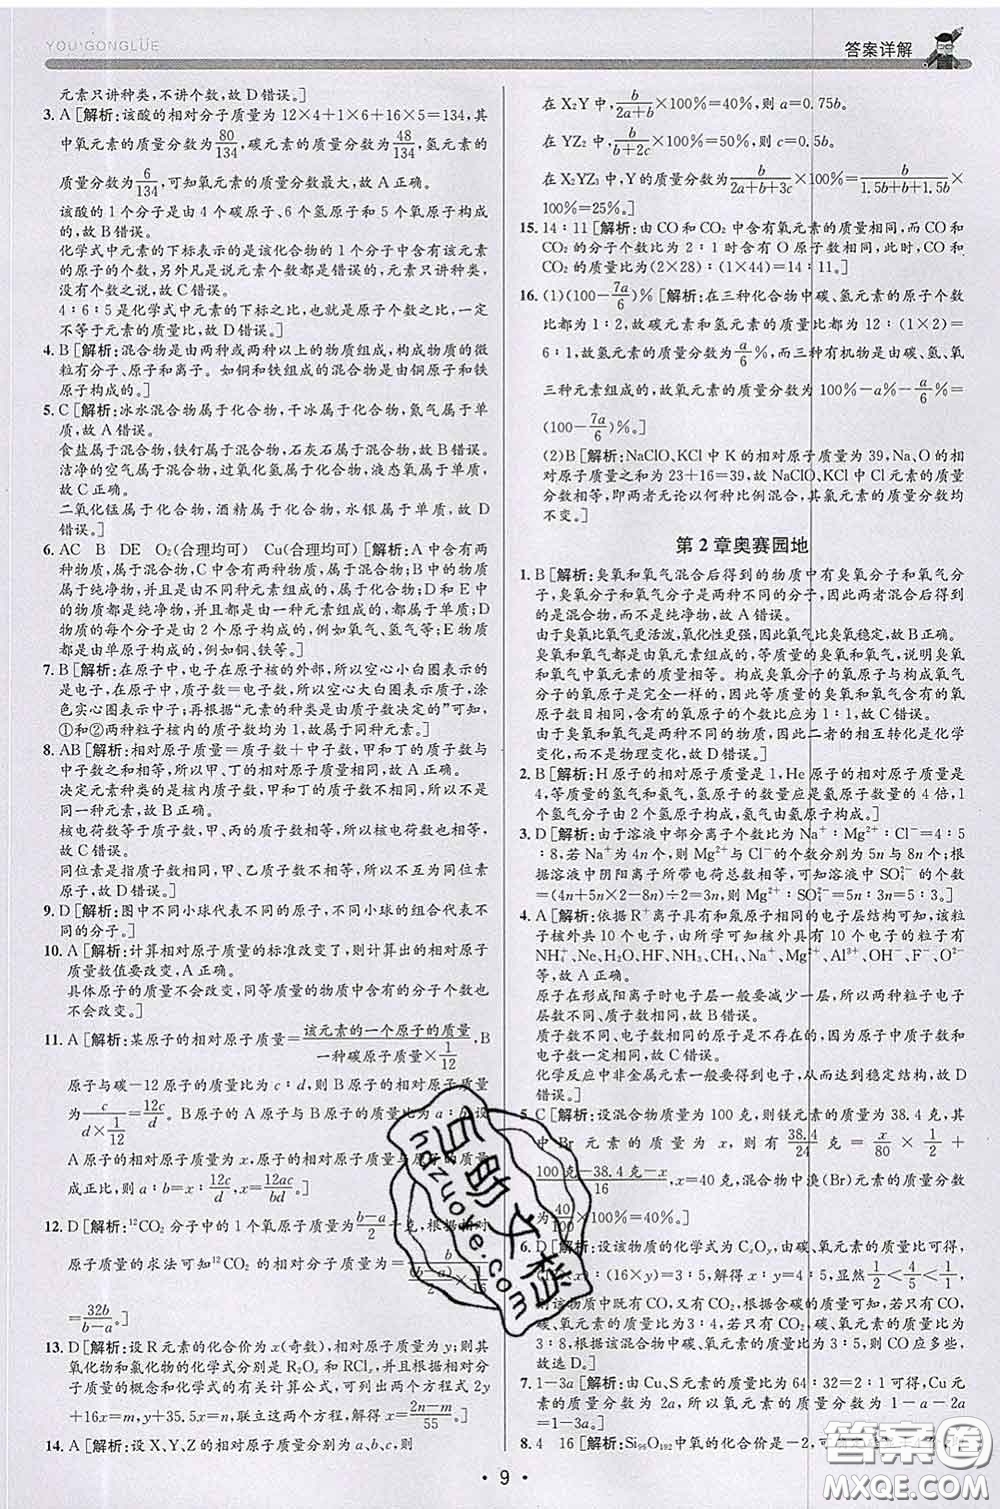 YOU GONGLUE
答案详解
元素只讲种类,不讲个数,故 D 错误。]
3. A [解析:该酸的相对分子质量为 12×4+1×6+16×5=134,其
中氧元素的质量分数为80/134,碳元素的质量分数为48/134,氢元素的
质量分数为6/134,可知氧元素的质量分数最大,故 A 正确。
该酸的 1 个分子是由 4 个碳原子、6 个氢原子和 5 个氧原子构成
的,故 B 错误。
化学式中元素的下标表示的是该化合物的 1 个分子中含有该元
素的原子的个数,另外凡是说元素个数都是错误的,元素只讲种类,
没有个数之说,故 C 错误。
4∶6∶5 是化学式中元素的下标之比,也就是原子个数之比,一定
不等于元素的质量比,故 D 错误。]
4. B [解析:混合物是由两种或两种以上的物质组成,构成物质的微
粒有分子、原子和离子。如铜和铁组成的混合物是由铜原子和铁
原子构成的。]
5. C [解析:冰水混合物属于化合物,干冰属于化合物,氮气属于单
质,故 A 错误。
食盐属于混合物,铁钉属于混合物,石灰石属于混合物,故 B 错误。
洁净的空气属于混合物,过氧化氢属于化合物,氢气属于单质,
故 C 正确。
二氧化锰属于化合物,酒精属于化合物,水银属于单质,故 D
错误。]
6. AC B DE O₂(合理均可) Cu(合理均可) [解析:A 中含有两
种物质,属于混合物;B 中含有一种物质,属于化合物;C 中含有两
种物质,属于混合物,是由不同种元素组成的混合物;D 和 E 中都
是由一种物质组成,都属于纯净物,是由同种元素组成的单质;D
物质的每个分子是由 2 个原子构成的,例如氧气、氢气等;E 物质
是由原子直接构成的,例如铜、铁等。]
7. B [解析:在原子中,电子在原子核的外部,所以空心小白圈表示的
是电子;在原子中,质子数=电子数,所以空心大白圈表示质子,涂
色实心圆表示中子;再根据“元素的种类是由质子数决定的”可知,
①和②两种粒子核内的质子数均为 1,故属于同种元素。]
8. AB [解析:相对原子质量=质子数+中子数,甲和丁的质子数与
中子数之和相同,所以甲、丁的相对原子质量相同,故 A 正确。
决定元素种类的是核内质子数,甲和丁的质子数不相等,所以不是
同一种元素,故 B 正确。
核电荷数等于质子数,甲、丙的质子数相等,所以核电荷数相等,
故 C 错误。
同位素是指质子数相同,甲、乙质子数不相等,所以不互为同位素
原子,故 D 错误。]
9. D [解析:图中不同小球代表不同的原子,不同小球的组合代表不
同的分子。]
10. A [解析:计算相对原子质量的标准改变了,则计算出的相对原子
质量数值要改变,A 正确。
具体原子的质量不会改变,同等质量的物质中含有的分子个数也
不会改变。]
11. A [解析:某原子的相对原子质量=该元素的一个原子的质量/(一种碳原子质量×1/12),B
原子与碳-12 原子的质量之比为 c∶d,则 B 的相对原子质量
为c/(d×1/12)=12c/d。B 原子与 A 原子的质量比为 a∶b,设
A 原子的相对原子质量为 x,原子质量与相对原子质量
成正比,则 a∶b=x∶12c/d,x=12ac/bd。]
12. D [解析:¹²CO₂ 分子中的 1 个氧原子质量为(b-a)/2千克,根据相对
原子质量的求法可知¹²CO₂ 的相对分子质量为b/((b-a)/2×1/16)
=32b/(b-a)。]
13. D [解析:设 R 元素的化合价为 x(奇数),相对原子质量为 y;则其
氧化物和氯化物的化学式分别是 R₂Oₓ 和 RClₓ,并且根据相对分
子质量的概念和化学式的有关计算公式,可以得到两个方程式 2y
+16x=m,y+35.5x=n,联立这两个方程,则 x=(2n-m)/55。]
14. A [解析:设 X、Y、Z 的相对原子质量分别为 a、b、c,则
在 X₂Y 中,b/(2a+b)×100%=40%,则 a=0.75b。
在 YZ₂ 中,b/(b+2c)×100%=50%,则 c=0.5b。
在 X₂YZ₃ 中,Y 的质量分数为b/(2a+b+3c)×100%=b/(1.5b+b+1.5b)×
100%=25%。]
15. 14∶11 [解析:由 CO 和 CO₂ 中含有氧元素的质量相同,而 CO 和
CO₂ 的分子个数比为 2∶1 时含有 O 原子个数相同,此时,CO 与
CO₂ 的质量比为(2×28)∶(1×44)=14∶11。]
16. (1)(100-7a/6)% [解析:在三种化合物中碳、氢元素的原子个数
比都为 1∶2,故碳元素和氢元素的质量比都为 12∶(1×2)=
6∶1,故氢元素的质量分数为a/6%,而三种有机物是由碳、氢、氧
三种元素组成的,故氧元素的质量分数为 100%-a%-a/6%=
(100-7a/6)%。]
(2)B [解析:NaClO、KCl 中 K 的相对原子质量为 39,Na、O 的相
对原子质量之和为 23+16=39,故 NaClO、KCl 中 Cl 元素的质量
分数相等,即两者无论以何种比例混合,其氯元素的质量分数均
不变。]
第 2 章奥赛园地
1. B [解析:臭氧和氧气混合后得到的物质中有臭氧分子和氧气分
子,臭氧分子和氧气分子是两种不同的分子,因此两者混合后得到
的是混合物,而不是纯净物,故 A 错误。
由于臭氧比氧气更活泼,氧化性更强,因此氧气比臭氧稳定,故 B 正确。
臭氧和氧气的都是由氧元素组成的,等质量的臭氧和氧气,说明臭氧
和氧气中氧元素的质量相等。构成臭氧分子的氧原子与构成氧气
分子的氧原子是完全一样的,因此等质量的臭氧和氧气含有的氧
原子数目相同,含有的氧原子的个数之比应为 1∶1,故 C 错误。
由于臭氧和氧气是两种不同的物质,因此二者的相互转化是化学
变化,而不是物理变化,故 D 错误。]
2. B [解析:H 原子的相对原子质量是 1,He 原子的相对原子质量是
4,等质量的氢气和氦气,氢原子的数量应是氦原子数量的 4 倍,1
个氢气分子由两个氢原子构成,氦气由氦原子构成。]
3. D [解析:由于溶液中部分离子个数比为 Na⁺∶Mg²⁺∶Cl⁻=4∶5
∶8,若 Na⁺为 4n 个,则 Mg²⁺和 Cl⁻的个数分别为 5n 与 8n 个,根
据溶液中阴阳离子所带电荷总数相等,可知溶液中 SO₄²⁻的个数为
(4n+5n×2-8n)÷2=3n,则 Mg²⁺∶SO₄²⁻=5n∶3n=5∶3。]
4. A [解析:依据 R⁺离子具有和氖原子相同的电子层结构可知,该粒
子核外共有 10 个电子,由于核外共有 10 个电子的粒子有
NH₄⁺、Ne、H₂O、NH₃、HF、CH₄、Na⁺、Mg²⁺、Al³⁺、OH⁻、F⁻、O²⁻
等,故 A 正确。
原子在形成阳离子时电子层一般要减少,故 B 错误。
质子数不同、电子数相同的两种粒子可能是同种元素的原子和离子,
故 C 错误。
化学反应中非金属元素一般要得到电子形成阴离子,故 D
错误。]
5. C [解析:设混合物质量为 100 克,则镁元素的质量为 38.4 克,设其
中 Br 元素的质量为 x,则有38.4/24克=x/80×1/2+
(100 克-38.4 克-x)/16,x=40 克,混合物中溴(Br)元素的质量分数
为40/100×100%=40%。]
6. D [解析:设该物质的化学式为 CₓOᵧ,由碳、氧元素的质量比可得,
(12×x)∶(16×y)=3∶5,解得 x∶y=4∶5,显然1/2<4/5<1/1,
则该物质中既有 CO,又有 CO₂,
7. 1-3a [解析:由于 Cu、S 元素的质量比为 64∶32=2∶1,
8. 4 16 [解析:Si₉₆O₁₉₂ 中氧的化合价是-2,
· 9 ·
百助文档
hdzuoye.com
答案圈
MXQE.COM